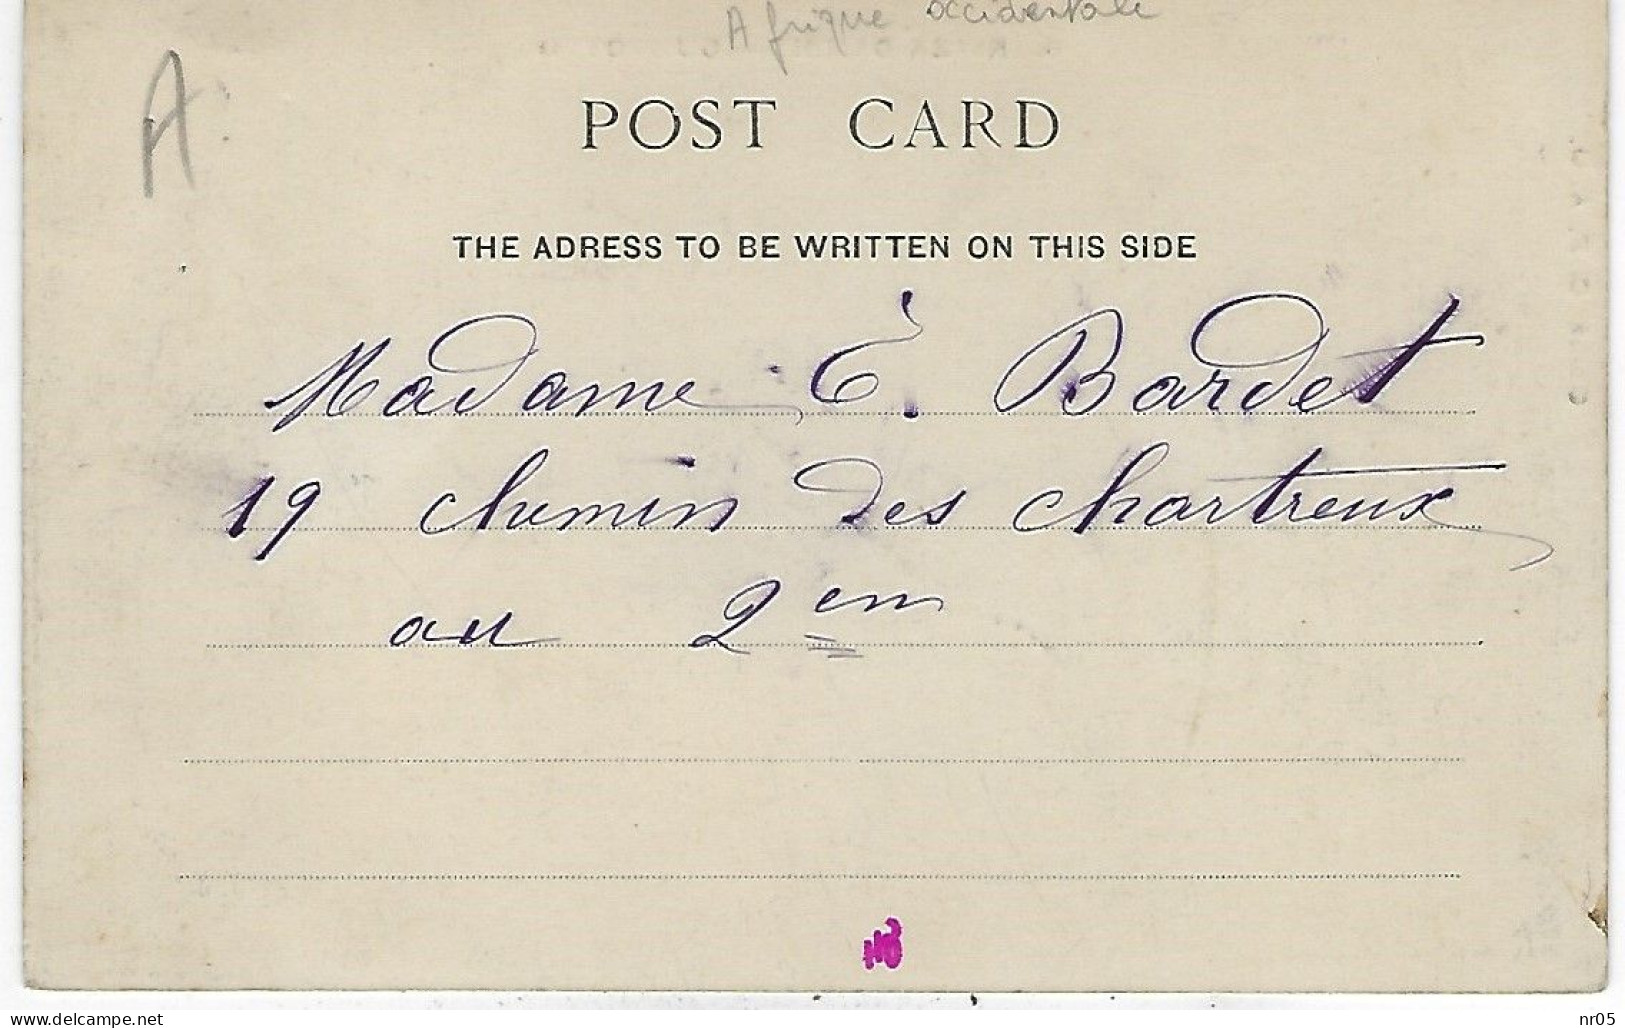 Afrique occidentale
A
POST CARD
THE ADRESS TO BE WRITTEN ON THIS SIDE
Madame É. Bardet
19 chemin des chartreux
au 2em
www.delcampe.net
nr05